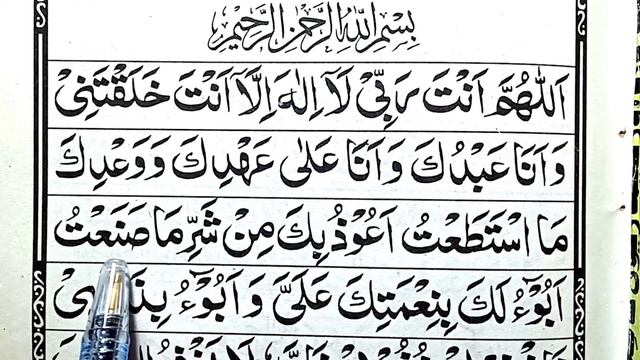 بِسْمِ اللّٰهِ الرَّحْمٰنِ الرَّحِيْمِ
اَللّٰهُمَّ اَنْتَ رَبِّيْ لَآ اِلٰهَ اِلَّآ اَنْتَ خَلَقْتَنِيْ
وَاَنَا عَبْدُكَ وَاَنَا عَلٰى عَهْدِكَ وَوَعْدِكَ
مَا اسْتَطَعْتُ اَعُوْذُ بِكَ مِنْ شَرِّ مَا صَنَعْتُ
اَبُوْٓءُ لَكَ بِنِعْمَتِكَ عَلَيَّ وَاَبُوْٓءُ